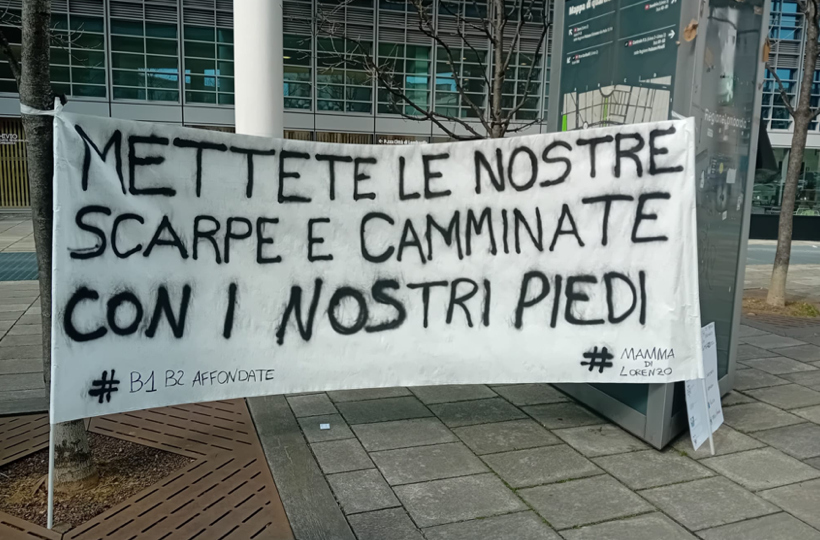 METTETE LE NOSTRE
SCARPE E CAMMINATE
CON I NOSTRI PIEDI
# B1 B2 AFFONDATE
# MAMMA
DI
LORENZO
Mappa di